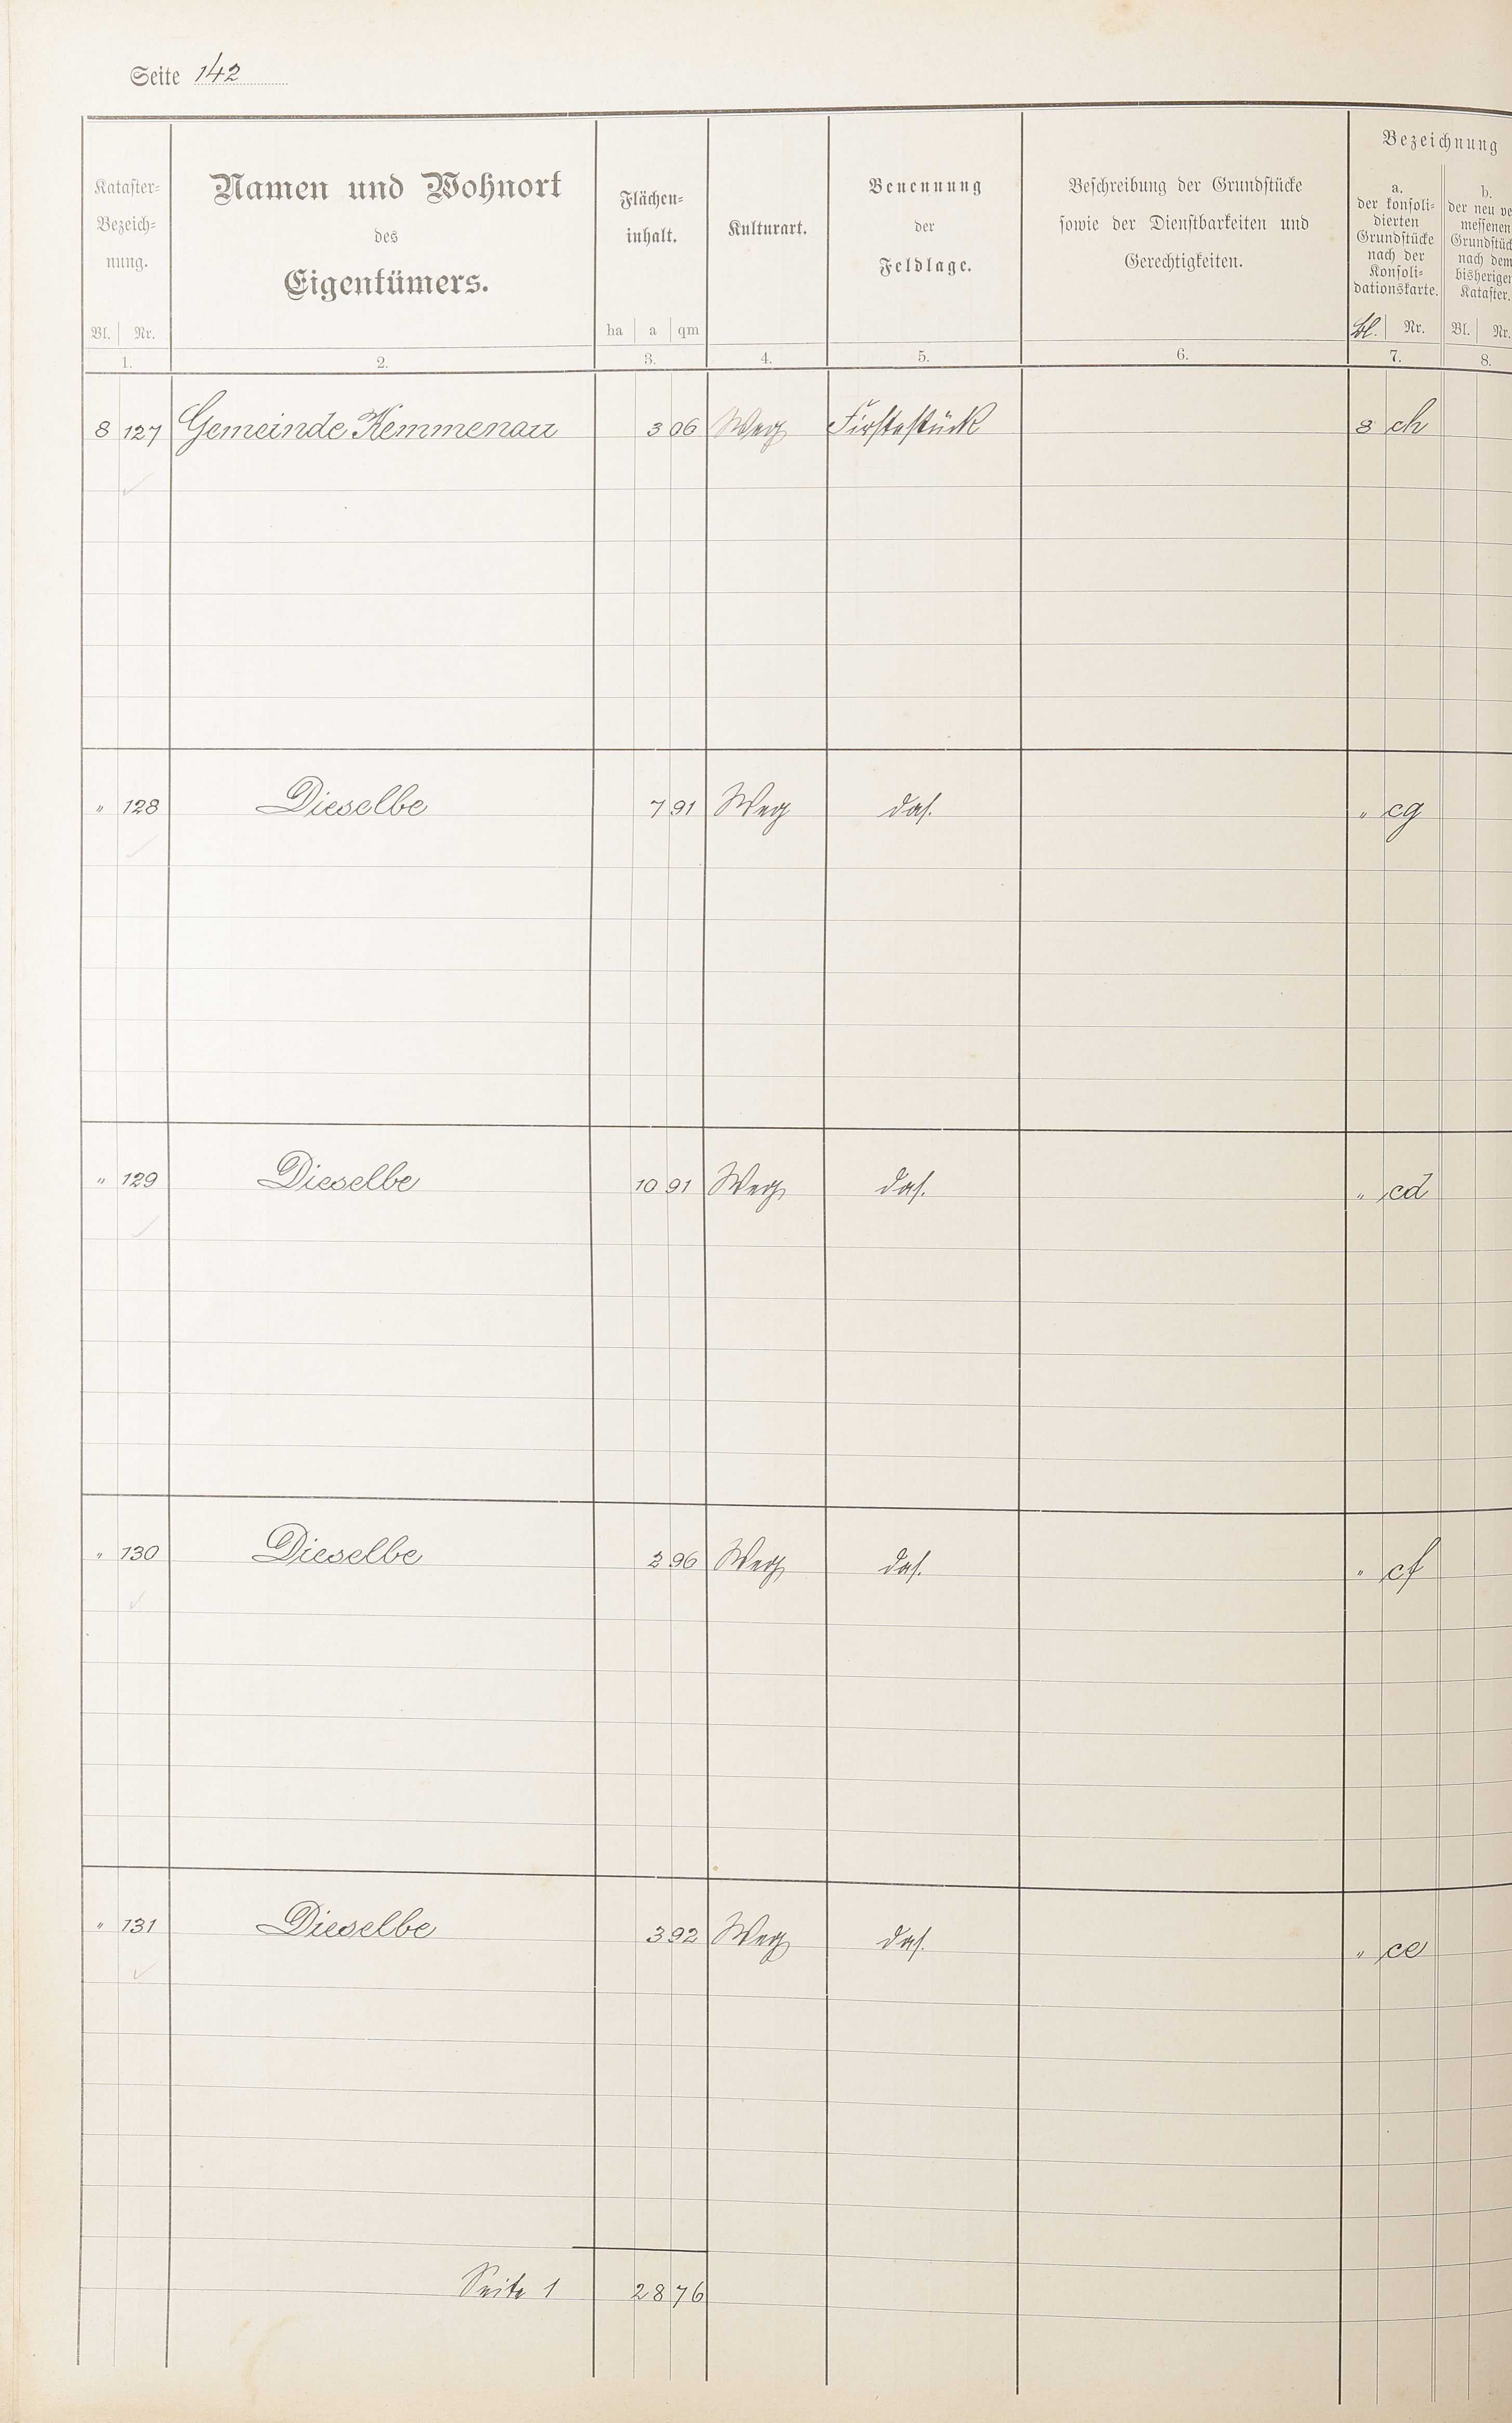 Seite 142
Kataster=
Bezeich=
nung.
Bl. Nr.
1.
Namen und Wohnort
des
Eigentümers.
2.
Flächen=
inhalt.
ha a qm
3.
Kulturart.
4.
Benennung
der
Feldlage.
5.
Beschreibung der Grundstücke
sowie der Dienstbarkeiten und
Gerechtigkeiten.
6.
Bezeichnung
a.
der konsoli=
dierten
Grundstücke
nach der
Konsoli=
dationskarte.
Bl. Nr.
7.
b.
der neu ve
messenen
Grundstück
nach dem
bisherigen
Kataster.
Bl. Nr.
8.
8 127 Gemeinde Kemmenau 3 06 Weg Firstestück 8 ch
" 128 Dieselbe 7 91 Weg das. " cg
" 129 Dieselbe 10 91 Weg das. " cd
" 130 Dieselbe 2 96 Weg das. " cf
" 131 Dieselbe 3 92 Weg das. " ce
Seite 1 28 76